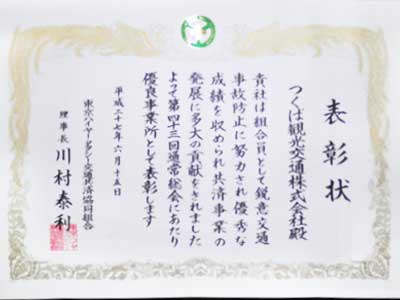 表彰状
つくば観光交通株式会社殿
貴社は組合員として鋭意交通
事故防止に努力され優秀な
成績を収められ共済事業の
発展に多大の貢献をされました
よって第四十三回通常総会にあたり
優良事業所として表彰します
平成二十七年六月十五日
東京ハイヤー・タクシー交通共済協同組合
理事長 川村泰利